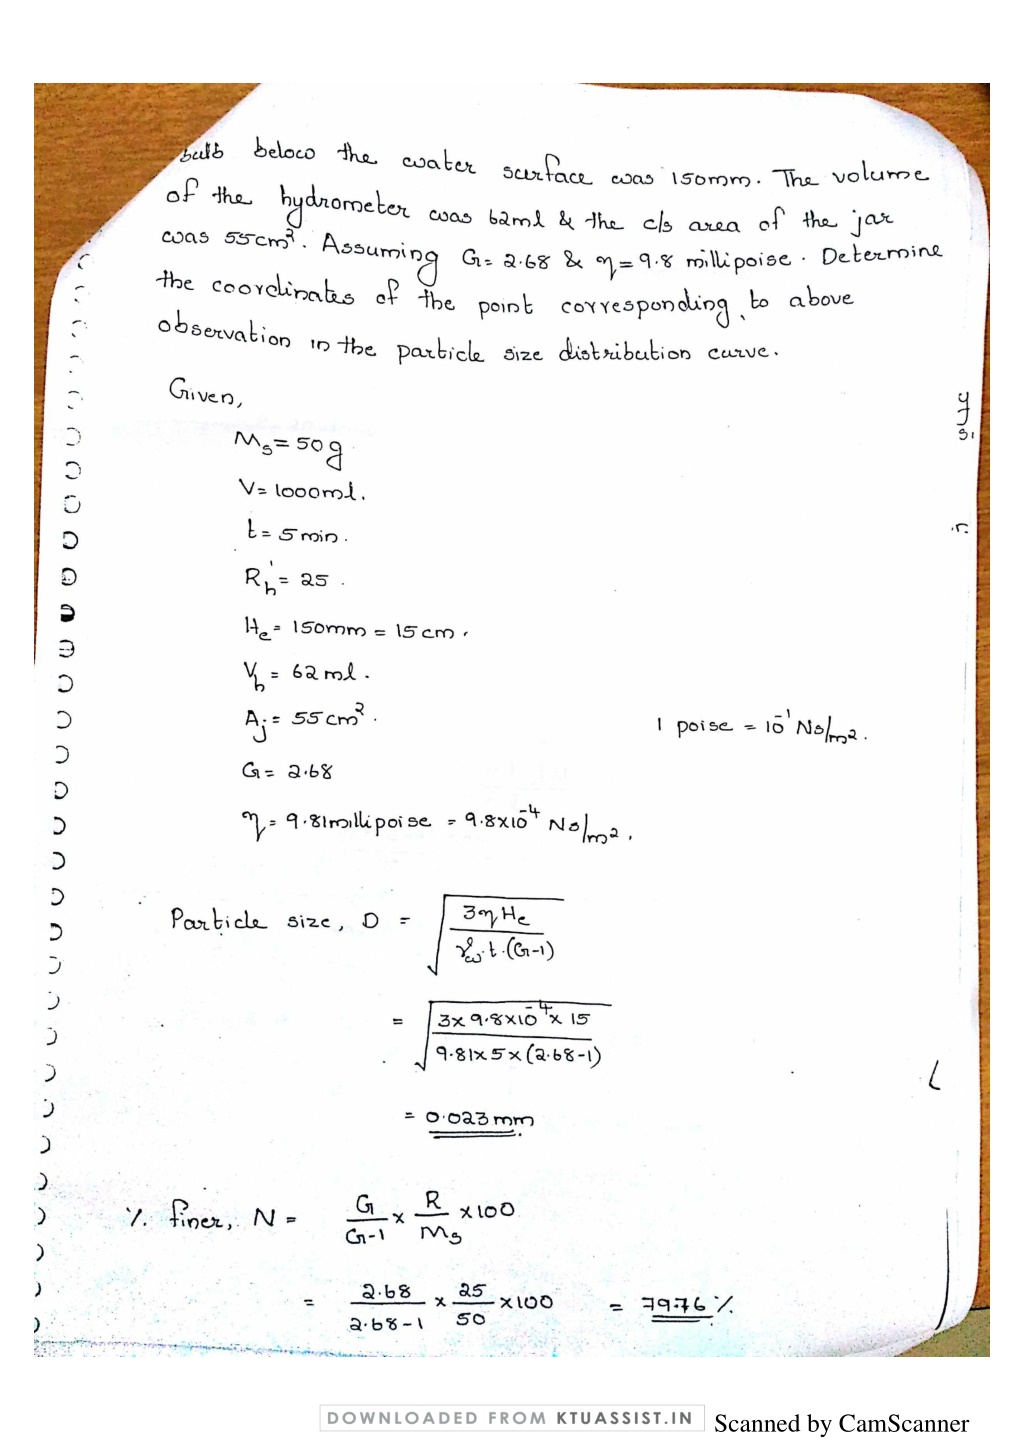 bulb below the water surface was 150mm. The volume
of the hydrometer was 62ml & the c/s area of the jar
was 55cm². Assuming G= 2.68 & η=9.8 millipoise. Determine
the coordinates of the point corresponding to above
observation in the particle size distribution curve.
Given,
Ms=50g
V=1000ml.
t=5min.
Rh'=25.
He=150mm=15cm.
Vh=62ml.
Aj=55cm².
1 poise = 10⁻¹ Ns/m².
G=2.68
η=9.81millipoise = 9.8x10⁻⁴ Ns/m².
Particle size, D = √(3ηHe / γω.t.(G-1))
= √(3x9.8x10⁻⁴x15 / 9.81x5x(2.68-1))
= 0.023mm.
% finer, N = G/G-1 x R/Ms x100
= 2.68/2.68-1 x 25/50 x100 = 79.76%.
DOWNLOADED FROM KTUASSIST.IN
Scanned by CamScanner